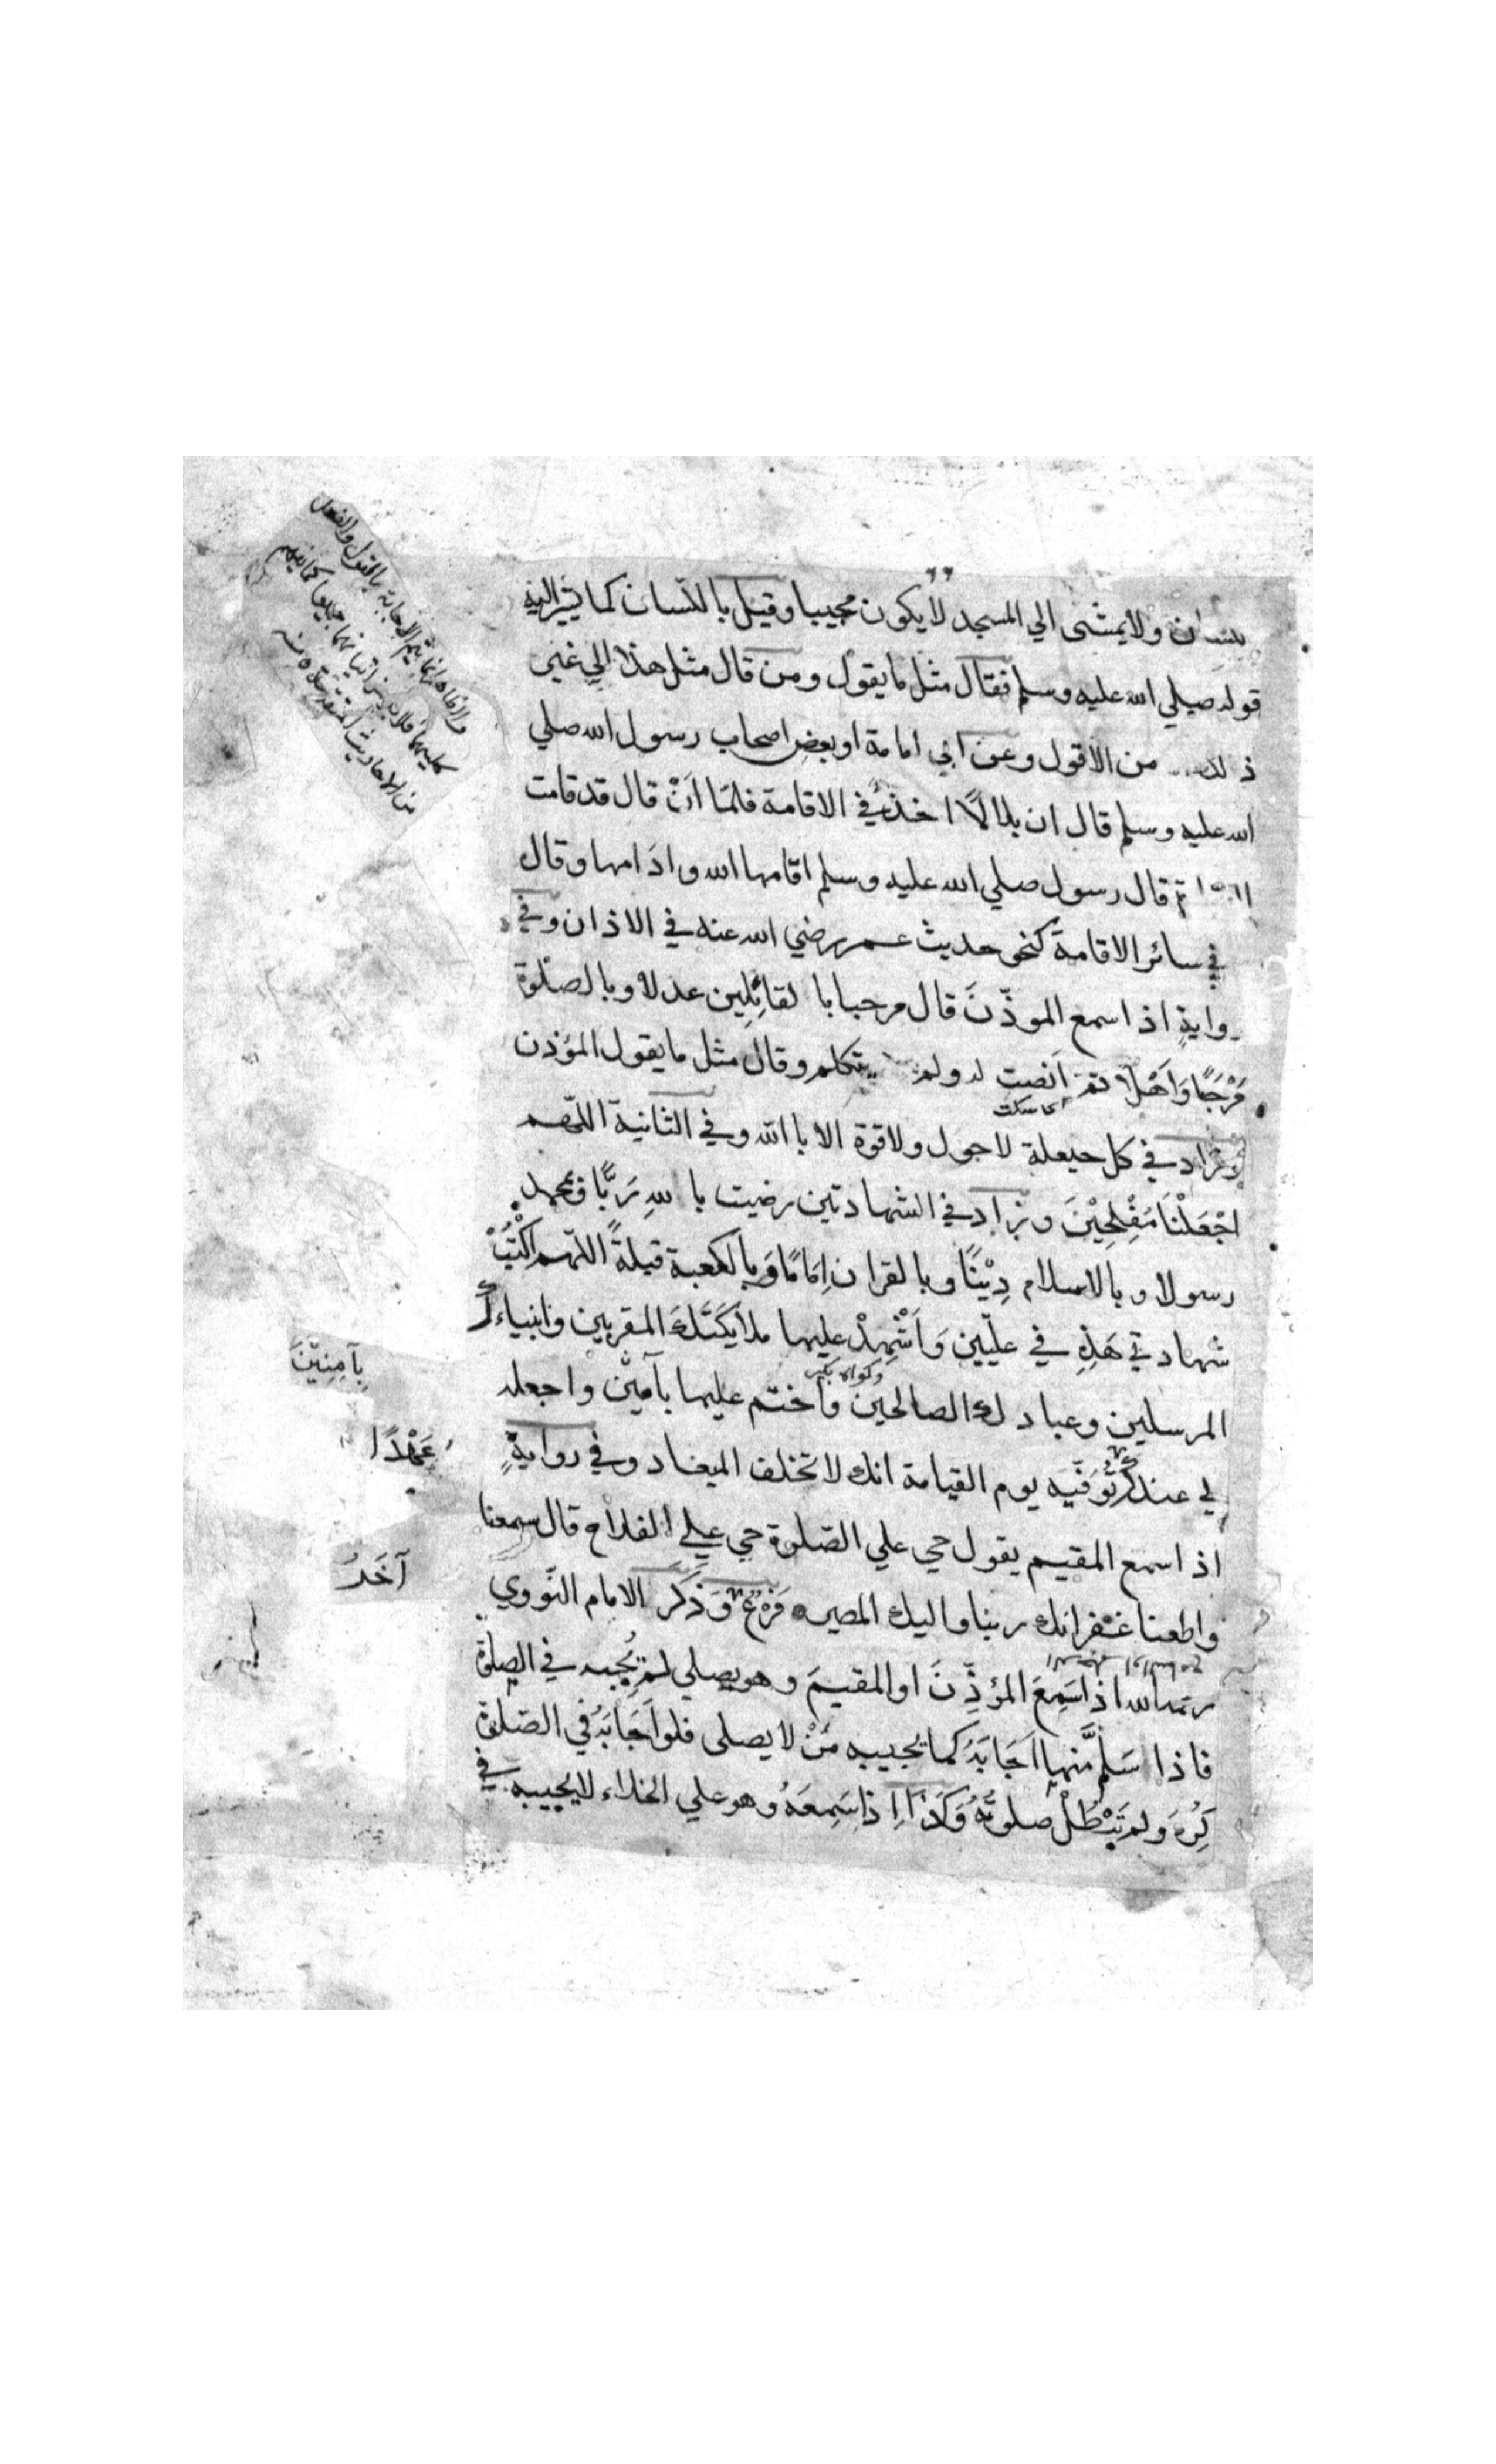 ولا يمشى الي المسجد لا يكون مجيبا وقيل باللسان كما يشير اليه
قوله صلي الله عليه وسلم فقال مثل ما يقول ومن قال مثل هذا الي غير
ذلك من الاقول وعن ابي امامة او بعض اصحاب رسول الله صلي
الله عليه وسلم قال ان بلالًا اخذ في الاقامة فلمّا اَنْ قال قد قامت
قال رسول صلي الله عليه وسلم اقامها الله واَدَامها وقال
في سائر الاقامة كنحو حديث عمر رضي الله عنه في الاذان وفي
رواية اذا سمع الموذّنَ قال مرحبا با لقائِلِين عدلا وبالصلوة
مَرْحَبًا وَاَهْلًا ثم اَنصت له ولم يتكلم وقال مثل ما يقول المؤذن
اى سكت
وزاد في كل حيعلة لا حول ولا قوة الا بالله وفي الثانية اللّهم
اجْعَلْنَا مُفْلِحِيْنَ ويزاد في الشهادتين رضيت باللهِ رَبًّا وبمحمدٍ
رسولا وبالاسلام دِيْنًا وبالقران اِمَامًا وَبالكعبة قبلةً اللّهم اكْتُبْ
شهادتي هَذِهِ في علّيين وَاَشْهِدْ عليها ملايكَتَكَ المقربين وانبياءك
المرسلين وعبادك الصالحين واختم عليها بآمين واجعله
لي عندك تُوَفّيه يوم القيامة انك لا تخلف الميعاد وفي روايةٍ
اذا سمع المقيم يقول حي علي الصّلوة حي علي الفلاح قال سمعنا
واطعنا غفرانك ربنا واليك المصير فَرْعٌ وَذَكَرَ الامام النّووي
رحمه الله اذا سَمِعَ المؤذِّنَ او المقيمَ وهو يصلي لم يُجبه في الصلوة
فاذا سَلَّمَ منها اَجَابَهُ كما يجيبه مَنْ لا يصلى فلو اَجَابَهُ في الصّلوة
كُرِهَ ولم تَبْطُلْ صلوتُهُ وَكَذَا اِذا سَمِعَهُ وهو علي الخلاء لا يجيبه في
بِآمِيْنَ
عَهْدًا
آخَرُ